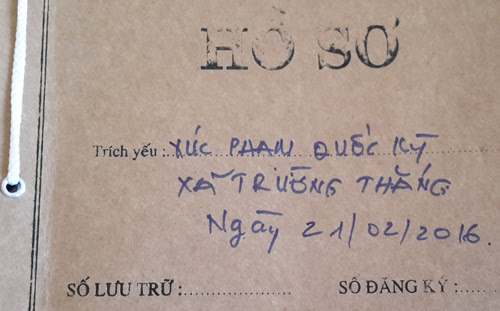 HỒ SƠ
Trích yếu : XÚC PHẠM QUỐC KỲ
XÃ TRƯỜNG THẮNG
Ngày 21/02/2016.
SỐ LƯU TRỮ : SỐ ĐĂNG KÝ :